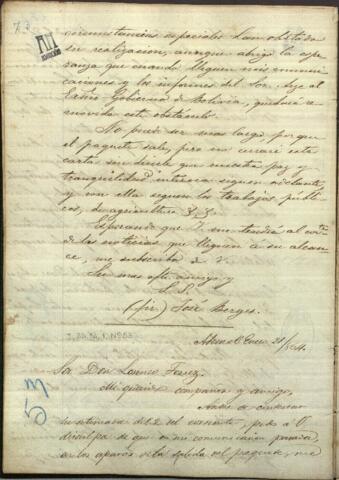 circunstancias especiales han obstado
su realizacion, aunque abrigo la espe-
ranza que cuando lleguen mis comuni-
caciones y los informes del Sor.
al Exmo Gobierno de Bolivia, quedará re-
movido este obstáculo.
No puedo ser mas largo porque
el paquete sale, pero no cerraré esta
carta sin decirle que nuestra paz y
tranquilidad interna siguen adelante,
y con ella siguen los trabajos públi-
cos, de agricultura
Esperando que V. me tendrá al corrte
de las noticias que lleguen á su alcan-
ce, me subscribo de V.
Su mas afto amigo y
S. S.
(fir) José Berges.
Enero 21/64.
Sor Don Lorenzo
Mi querido compañero y amigo,
Antes de contestar
su estimada del 2 del corriente, pido á V.
disculpa de que en mi comunicacion pasada,
á los apuros de la salida del paquete, me